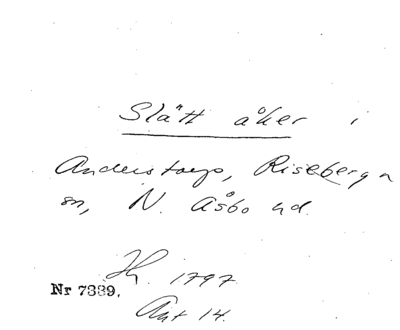 Slätt åker i
Anderstorp, Riseberga
sn, N. Åsbo hd.
Hh. 1797
Nr 7339.
Ant 14.